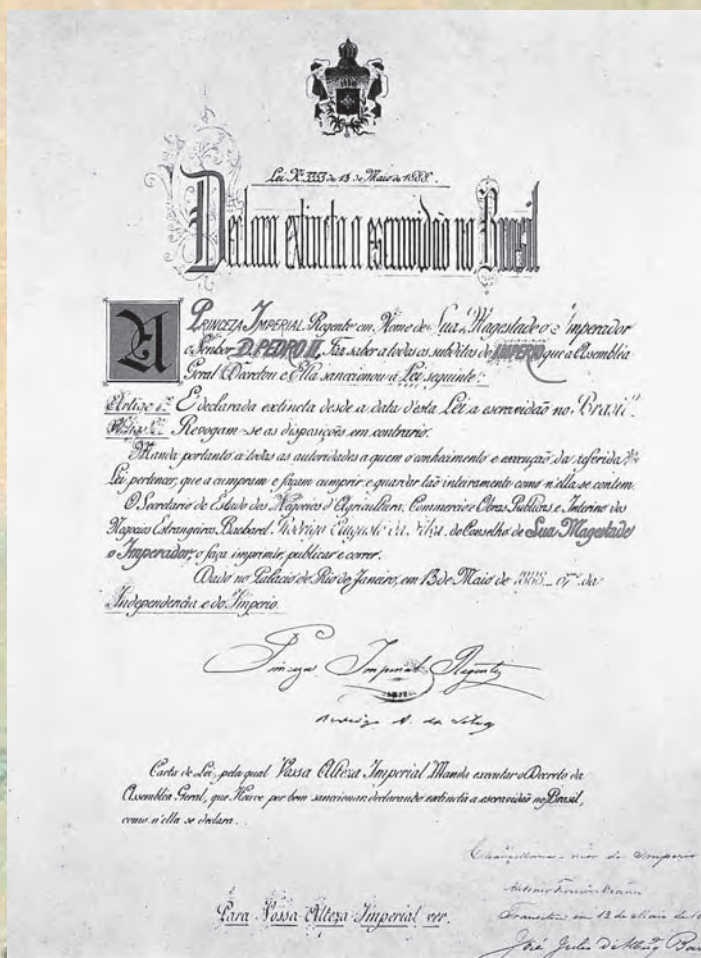 Lei Nº 3353 de 13 de Maio de 1888.
Declara extincta a escravidão no Brasil
A PRINCEZA IMPERIAL Regente em Nome de Sua Magestade o Imperador
o Senhor D. PEDRO II, Faz saber a todos os subditos do IMPERIO que a Assembléa
Geral Decretou e Ella sanccionou a Lei seguinte:
Artigo 1º É declarada extincta desde a data d'esta Lei a escravidão no Brasil.
Revogam-se as disposições em contrario.
Manda portanto a todas as autoridades a quem o conhecimento e execução da referida
Lei pertencer, que a cumpram e façam cumprir e guardar tão inteiramente como n'ella se contem.
O Secretario de Estado dos Negocios d'Agricultura, Commercio e Obras Publicas e Interino dos
Negocios Estrangeiros Bacharel Rodrigo Augusto da Silva do Conselho de Sua Magestade
o Imperador, o faça imprimir, publicar e correr.
Dado no Palacio do Rio de Janeiro, em 13 de Maio de 1888 - 67º da
Independencia e do Imperio.
Princeza Imperial Regente
Rodrigo A. da Silva
Carta de Lei, pela qual Vossa Alteza Imperial Manda executar o Decreto da
Assembléa Geral, que Houve por bem sanccionar declarando extincta a escravidão no Brasil,
como n'ella se declara.
Para Vossa Alteza Imperial ver.
Chancellaria-mór do Imperio
Antonio Ferreira Vianna
Transitou em 13 de Maio de
José Julio de